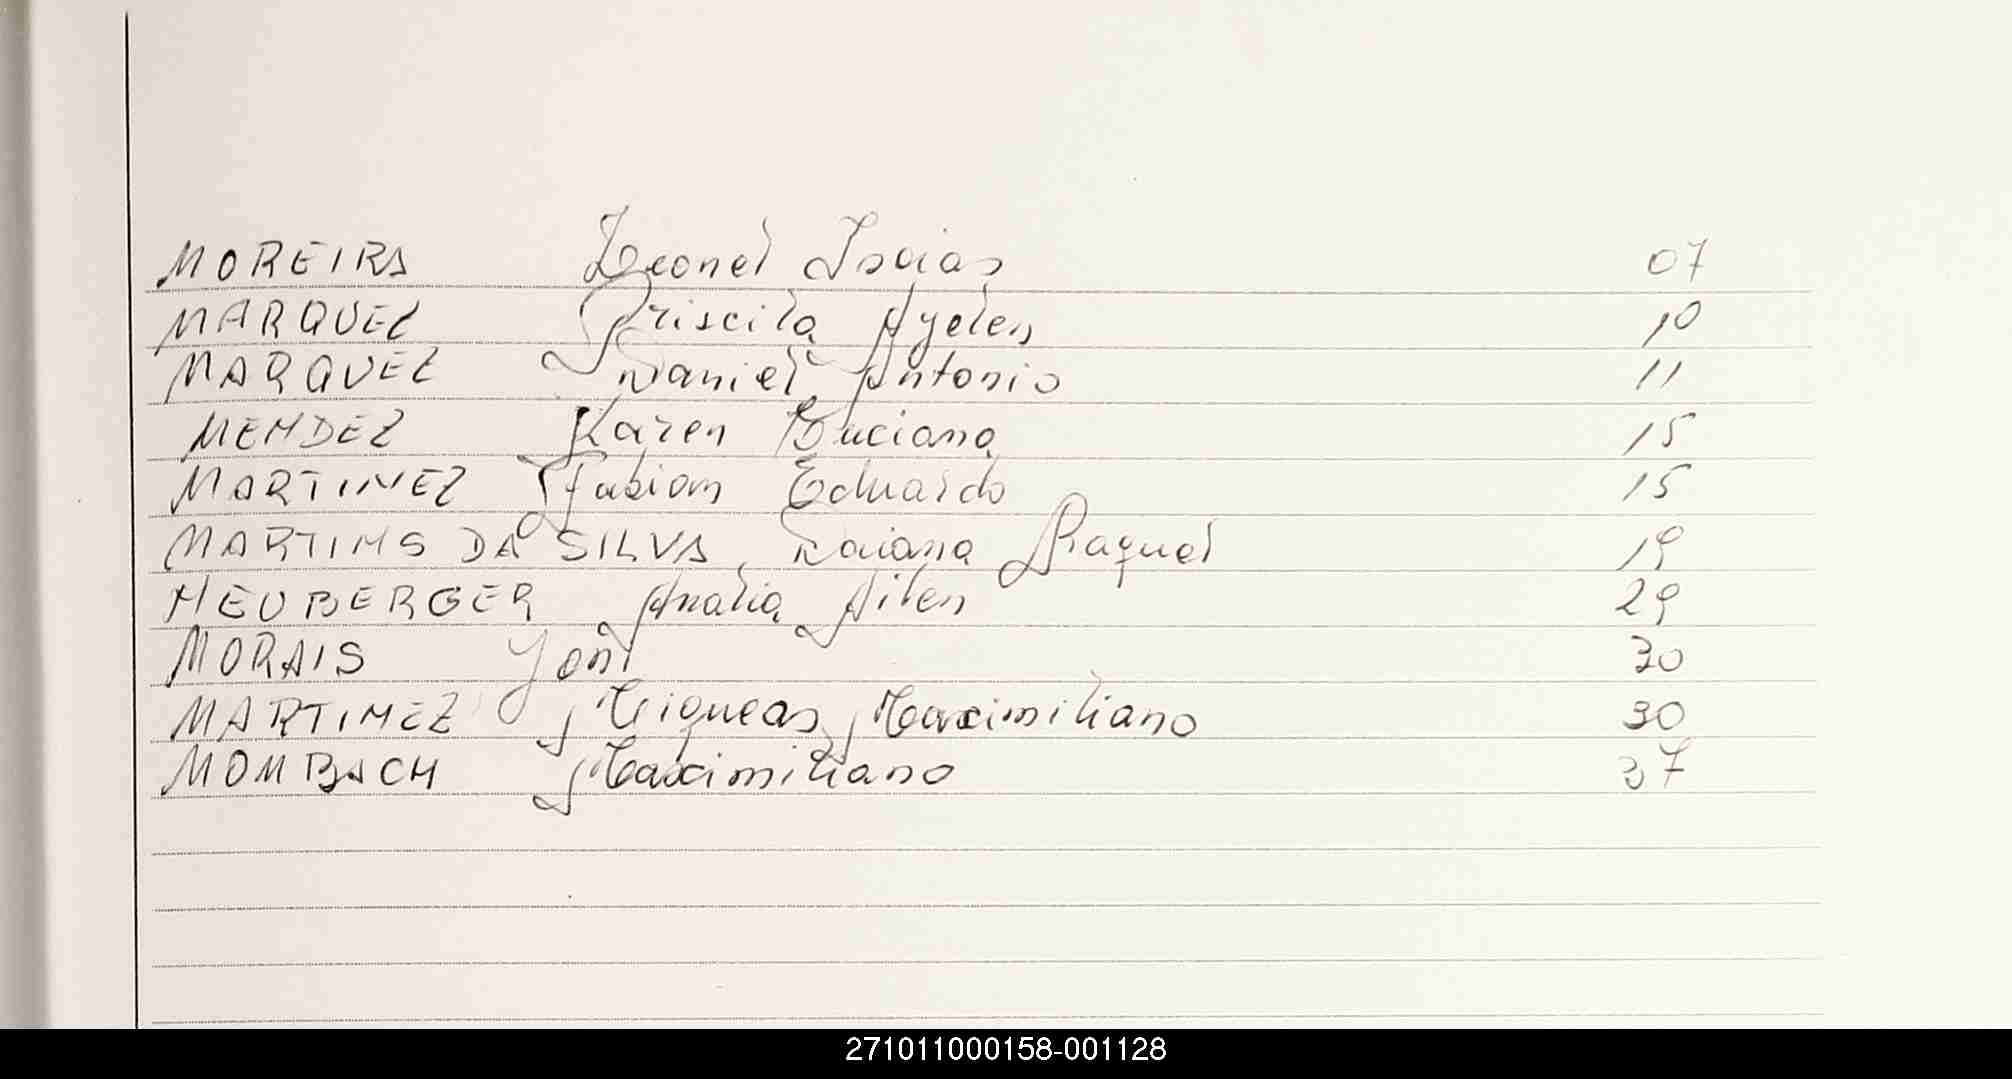 MOREIRA Leonel Isaias 07
MARQUEZ Priscila Ayelen 10
MARQUEZ Daniel Antonio 11
MENDEZ Karen Luciana 15
MARTINEZ Fabian Eduardo 15
MARTINS DA SILVA Daiana Raquel 19
NEUBERGER Analia Ailen 29
MORAIS Yoni 30
MARTINEZ Miqueas Maximiliano 30
MOMBACH Maximiliano 37
271011000158-001128